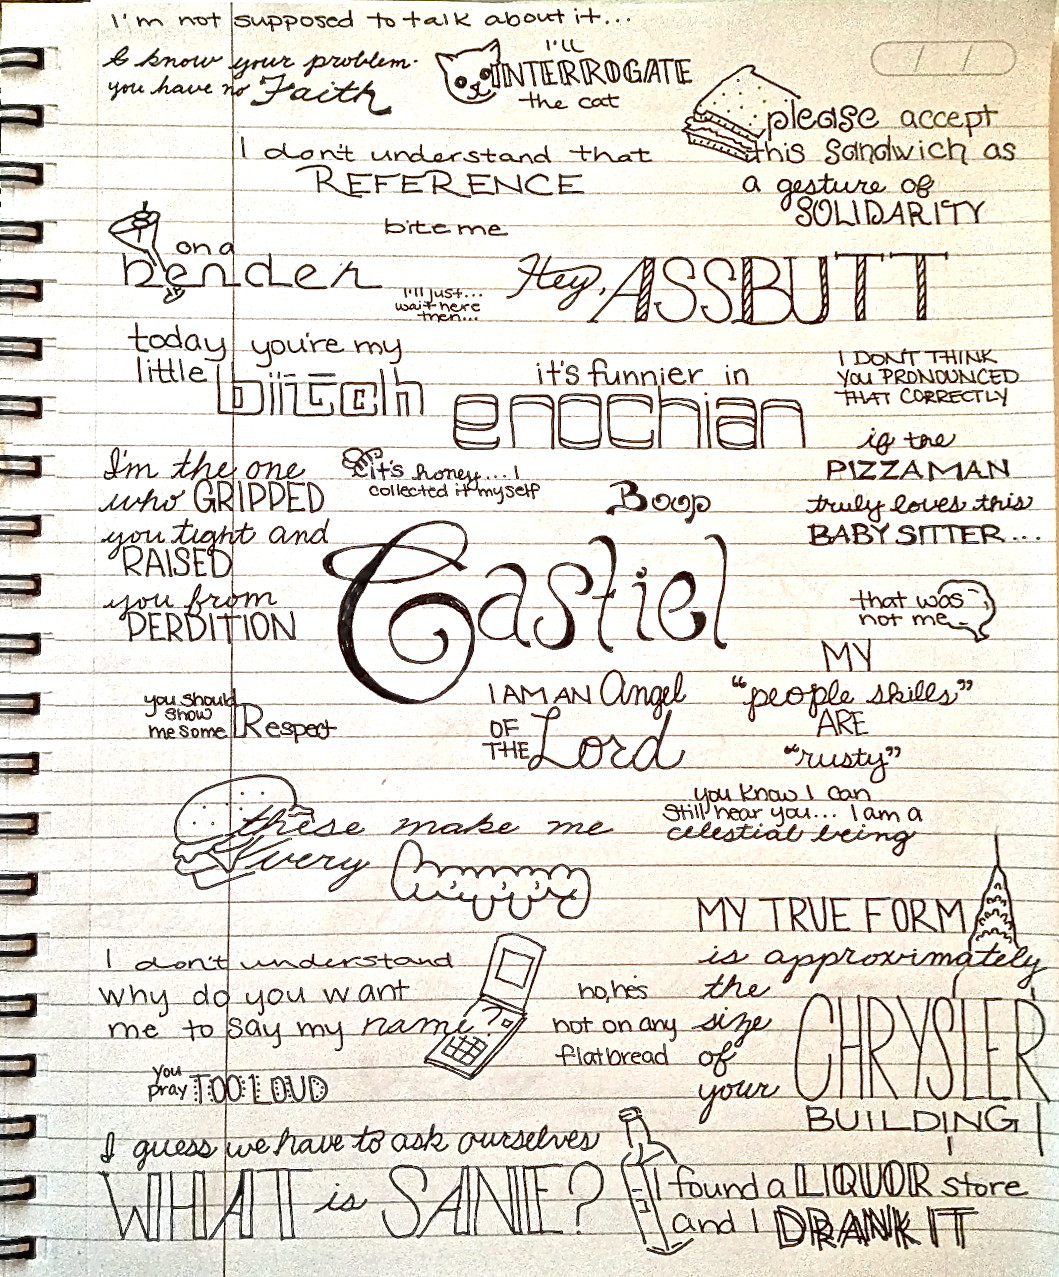 I'm not supposed to talk about it...
I know your problem.
you have no Faith
I'll
INTERROGATE
the cat
please accept
this sandwich as
a gesture of
SOLIDARITY
I don't understand that
REFERENCE
on a
bender
bite me
I'll just...
wait here
then...
Hey, ASSBUTT
today you're my
little biitch
it's funnier in
enochian
I DON'T THINK
YOU PRONOUNCED
THAT CORRECTLY
if the
PIZZA MAN
truly loves this
BABY SITTER...
I'm the one
who GRIPPED
you tight and
RAISED
you from
PERDITION
it's honey....I
collected it myself
Boop
Castiel
that was
not me
MY
"people skills"
ARE
"rusty"
you should
show
me some Respect
I AM AN Angel
OF
THE Lord
you know I can
still hear you... I am a
celestial being
these make me
very happy
MY TRUE FORM
is approximately
the
size
of
your
CHRYSLER
BUILDING
I don't understand
why do you want
me to say my name?
no, he's
not on any
flatbread
you
pray TOO LOUD
I guess we have to ask ourselves
WHAT is SANE?
I found a LIQUOR store
and I DRANK IT